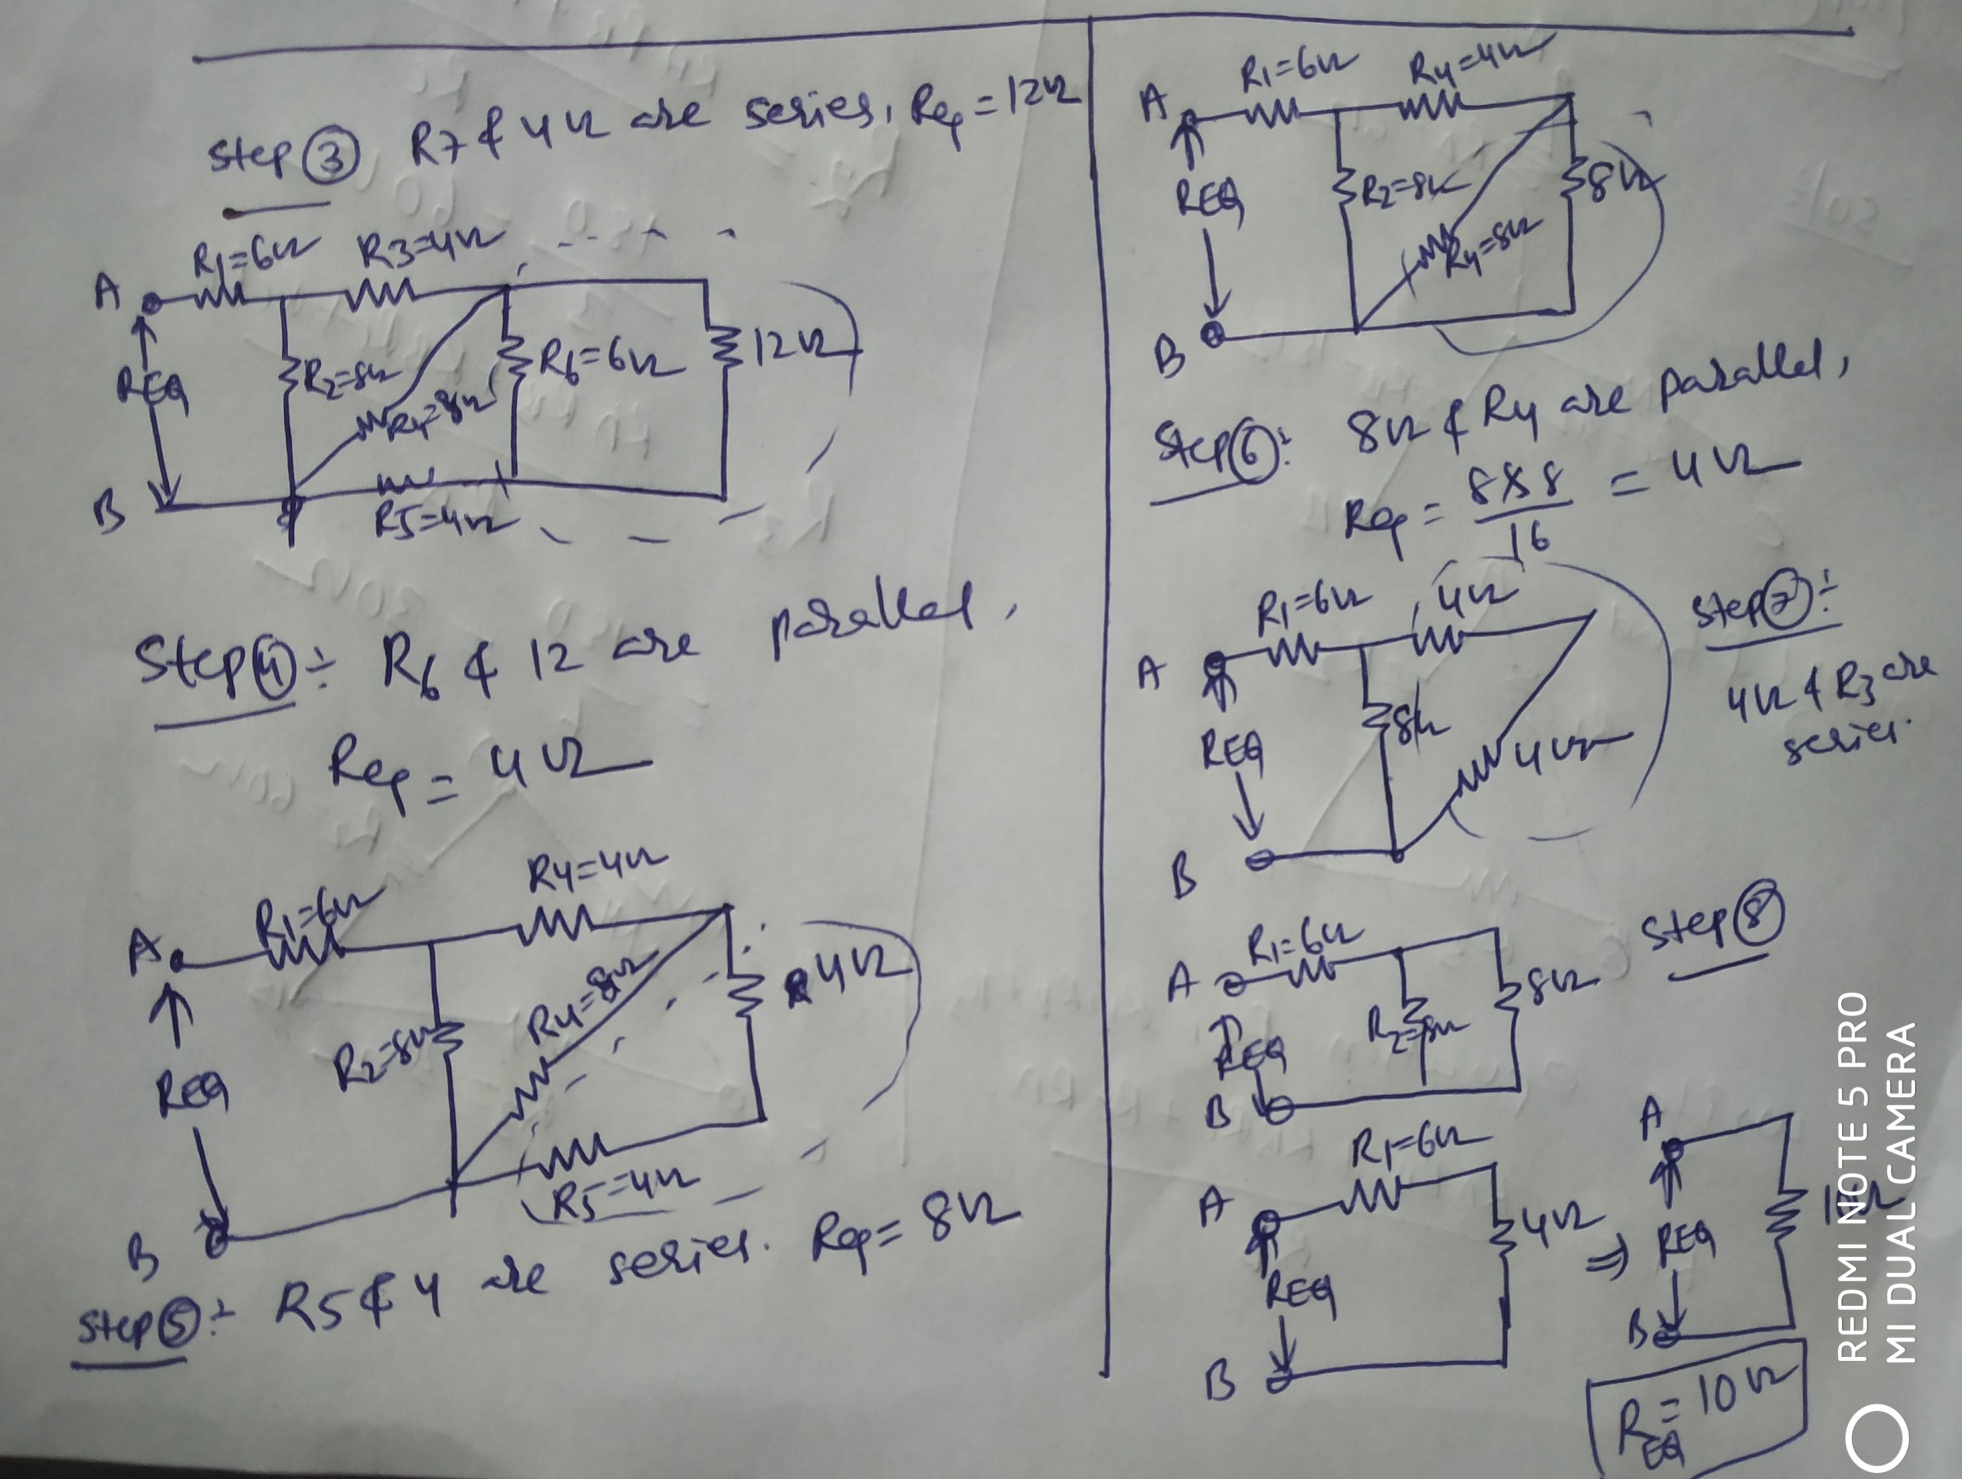 Step 3 R7 & 4Ω are series, Req = 12Ω
R1=6Ω R3=4Ω
A
REQ
R2=8Ω
R4=8Ω
R6=6Ω
12Ω
B
R5=4Ω
Step 4 ÷ R6 & 12 are parallel,
Req = 4Ω
R1=6Ω R4=4Ω
A
REQ
R2=8Ω
R4=8Ω
4Ω
B
R5=4Ω
Step 5 ÷ R5 & 4 are series. Req = 8Ω
R1=6Ω R4=4Ω
A
REQ
R2=8Ω
R4=8Ω
8Ω
B
Step 6 ÷ 8Ω & R4 are parallel,
Req = 8×8/16 = 4Ω
R1=6Ω 4Ω
A
REQ
8Ω
4Ω
B
Step 7 ÷
4Ω & R3 are
series.
Step 8
R1=6Ω
A
REQ
R2=8Ω
8Ω
B
R1=6Ω
A
REQ
4Ω
B
⇒
A
REQ
B
REQ = 10Ω
REDMI NOTE 5 PRO
MI DUAL CAMERA